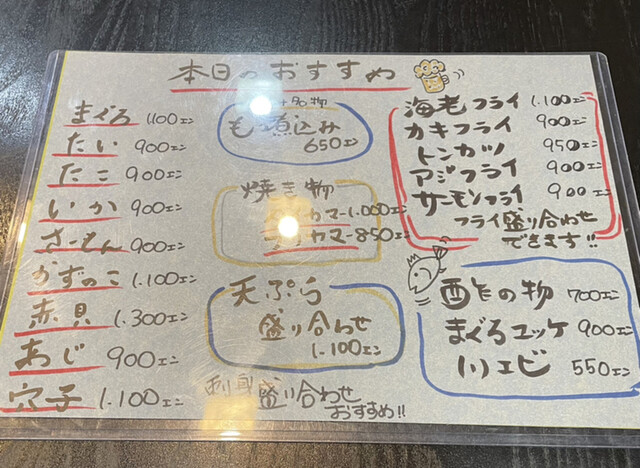 本日のおすすめ
まぐろ 1100エン
たい 900エン
たこ 900エン
いか 900エン
さーもん 900エン
かずのこ 1.100エン
赤貝 1.300エン
あじ 900エン
穴子 1.100エン
もつ煮込み
650エン
焼き物
カマー1.000エン
カマー850エン
天ぷら
盛り合わせ
1.100エン
刺身盛り合わせ
おすすめ!!
海老フライ 1.100エン
カキフライ 900エン
トンカツ 950エン
アジフライ 900エン
サーモンフライ 900エン
フライ盛り合わせ
できます!!
酢の物 700エン
まぐろユッケ 900エン
川エビ 550エン